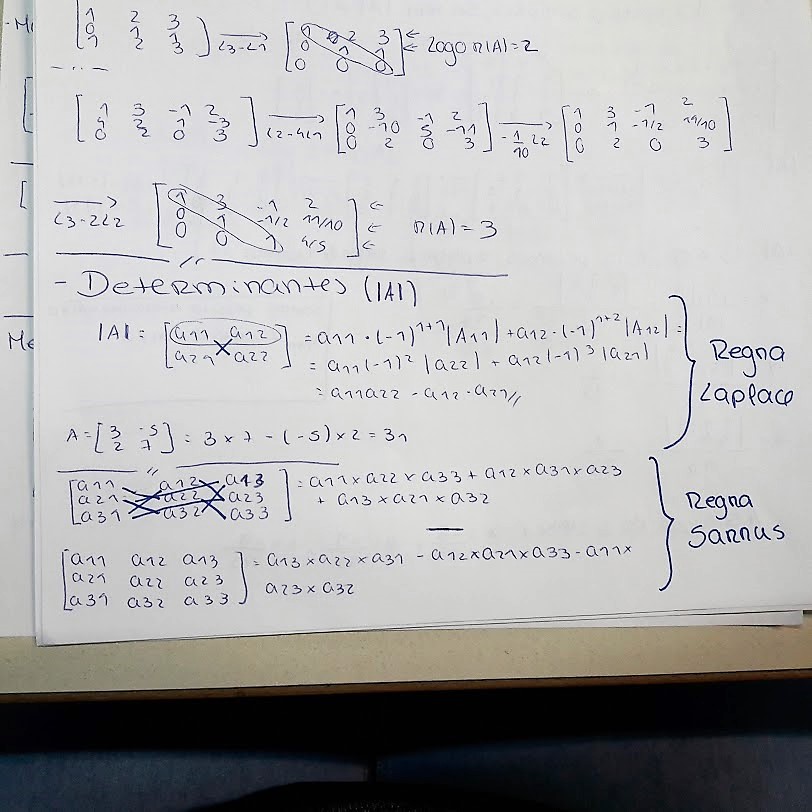 1 2 3
0 1 1
1 2 3
L3-L1
1 0 2 3
0 1 1
0 0 0
Logo r(A) = 2
1 3 -1 2
4 2 1 -3
0 2 0 3
L2-4L1
1 3 -1 2
0 -10 5 -11
0 2 0 3
-1/10 L2
1 3 -1 2
0 1 -1/2 11/10
0 2 0 3
L3-2L2
1 3 -1 2
0 1 -1/2 11/10
0 0 1 4/5
r(A) = 3
- Determinantes (|A|)
|A| = [a11 a12
a21 a22] = a11 · (-1)^1+1 |A11| + a12 · (-1)^1+2 |A12| =
= a11 (-1)^2 |a22| + a12 (-1)^3 |a21|
= a11a22 - a12 · a21 //
Regra
Laplace
A = [3 -5
2 7] = 3 x 7 - (-5) x 2 = 31
a11 a12 a13
a21 a22 a23
a31 a32 a33
= a11 x a22 x a33 + a12 x a31 x a23
+ a13 x a21 x a32
Regra
Sarrus
a11 a12 a13
a21 a22 a23
a31 a32 a33
= a13 x a22 x a31 - a12 x a21 x a33 - a11 x
a23 x a32